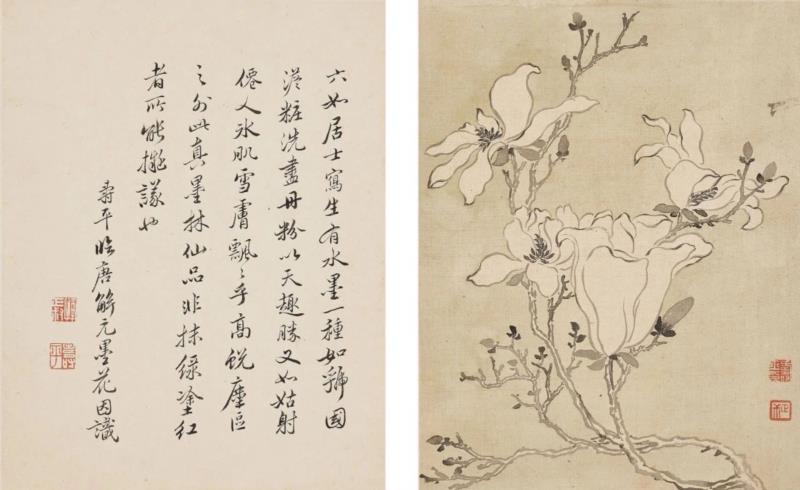 六如居士寫生有水墨一種如虢國
澹粧洗盡丹粉以天趣勝又如姑射
僊人冰肌雪膚飄〻乎高蛻塵區
之外此真墨林仙品非抹綠塗紅
者所能擬議也
壽平臨唐解元墨花因識